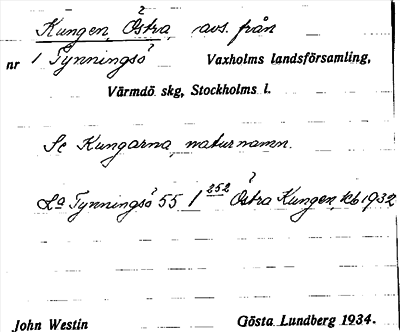 Kungen, Östra, avs. från
nr 1 Tynningsö Vaxholms landsförsamling,
Värmdö skg, Stockholms l.
Se Kungarna, naturnamn.
La Tynningsö 55 1 252 Östra Kungen, kb 1932
John Westin Gösta Lundberg 1934.